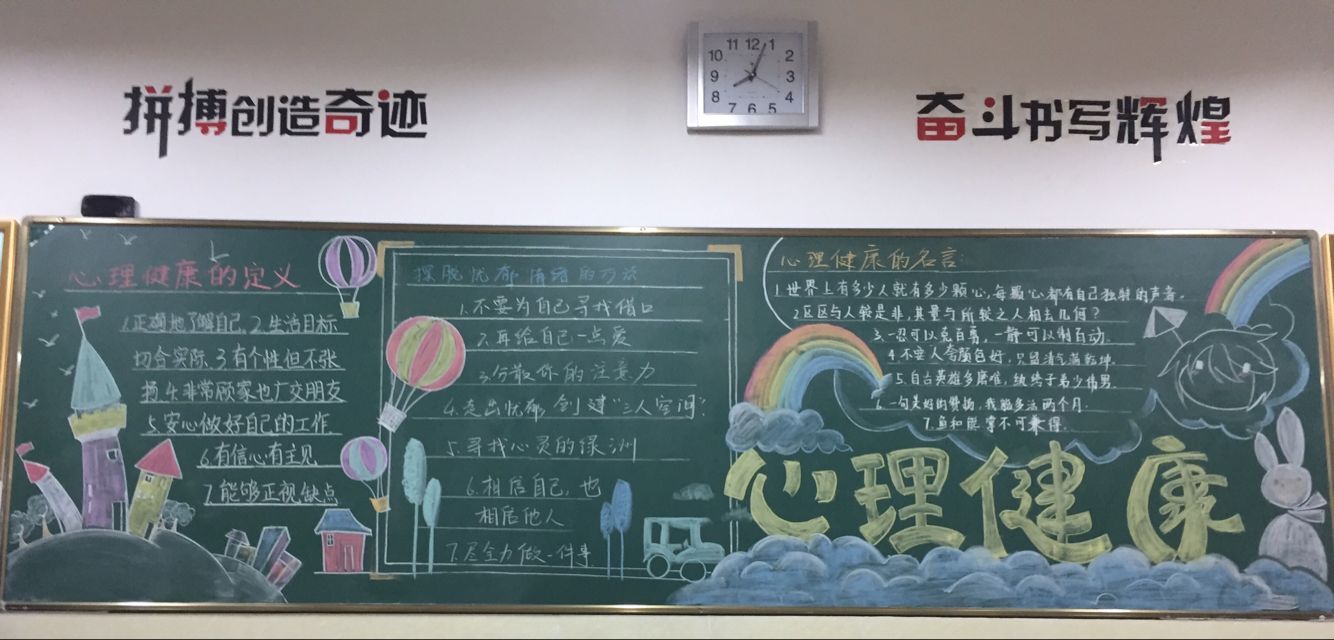 拼搏创造奇迹
12
1
2
3
4
5
6
7
8
9
10
11
奋斗书写辉煌
心理健康的定义
1.正确地了解自己.2.生活目标
切合实际.3.有个性但不张
扬4.非常顾家也广交朋友
5.安心做好自己的工作
6.有信心有主见
7.能够正视缺点
摆脱忧郁情绪的方法
1.不要为自己寻找借口
2.再给自己一点爱
3.分散你的注意力
4.走出忧郁,创建"三人空间"
5.寻找心灵的绿洲
6.相信自己,也
相信他人
7.尽全力做一件事
心理健康的名言:
1.世界上有多少人就有多少颗心,每颗心都有自己独特的声音。
2.区区与人较是非,其量与所较之人相去几何?
3.一忍可以克百勇,一静可以制百动。
4.不要人夸颜色好,只留清气满乾坤.
5.自古英雄多磨难,纨绔子弟少伟男.
6.一句美好的赞扬,我能多活两个月.
7.鱼和熊掌不可兼得.
心理健康